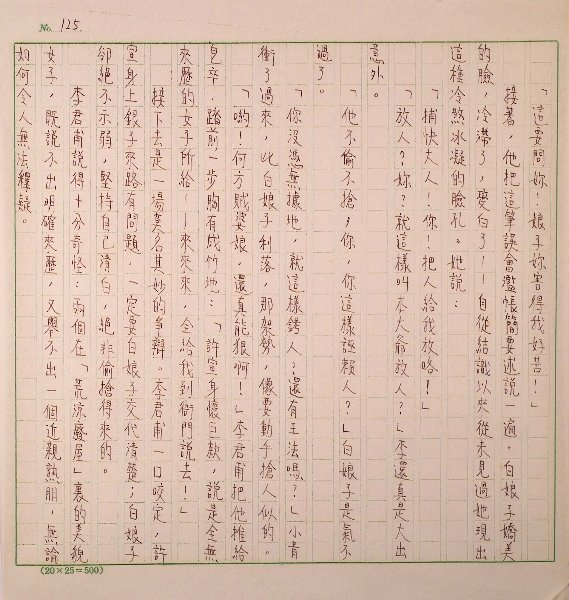 No. 125.
「這要問妳！娘子妳害得我好苦！」
接著，他把這筆誤會濫帳簡要述說一遍。白娘子嬌美
的臉，冷滯了，變白了——自從結識以來從未見過她現出
這種冷煞冰凝的臉孔。她說：
「捕快大人！你！把人給我放咯！」
「放人？妳？就這樣叫本大爺放人？」李還真是大出
意外。
「他不偷不搶，你，你這樣誣賴人？」白娘子是氣不
過了。
「你沒憑無據地，就這樣銬人？還有王法嗎？」小青
衝了過來，比白娘子利落，那架勢，像要動手搶人似的。
「喲！何方賊婆娘，還真能狠啊！」李君甫把他推給
皂卒，踏前一步胸有成竹地：「許宣身懷巨款，說是全無
來歷的女子所給——來來來，全給我到衙門說去！」
接下去是一場莫名其妙的爭辯。李君甫一口咬定，許
宣身上銀子來路有問題，一定要白娘子交代清楚；白娘子
卻絕不示弱，堅持自己清白，絕非偷搶得來的。
李君甫說得十分奇怪：兩個在「荒涼廢屋」裏的美貌
女子，既說不出明確來歷，又舉不出一個近親熟朋，無論
如何令人無法釋疑。
(20×25=500)